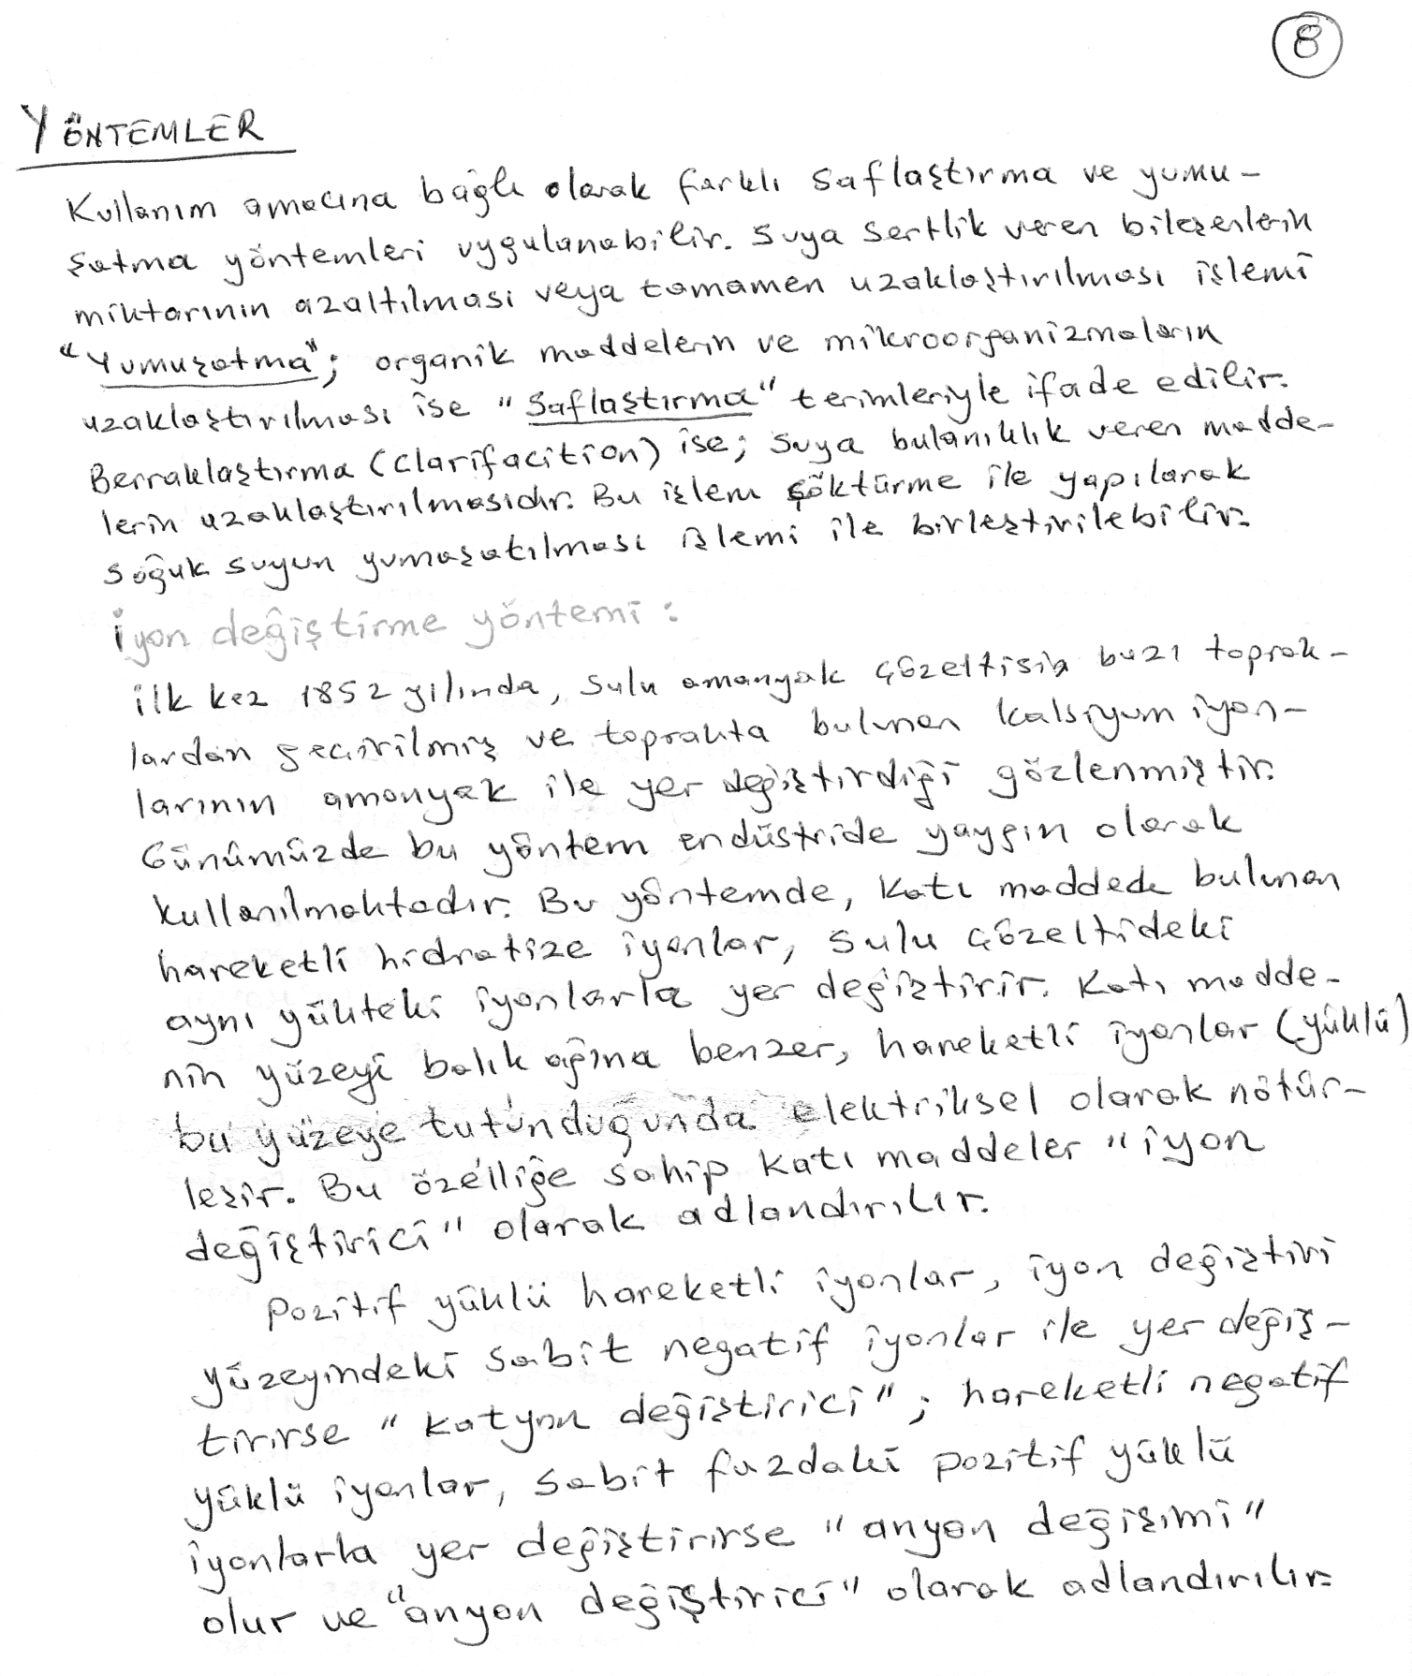 8
YÖNTEMLER
Kullanım amacına bağlı olarak farklı saflaştırma ve yumu-
şatma yöntemleri uygulanabilir. Suya sertlik veren bileşenlerin
miktarının azaltılması veya tamamen uzaklaştırılması işlemi
"Yumuşatma"; organik maddelerin ve mikroorganizmaların
uzaklaştırılması ise "Saflaştırma" terimleriyle ifade edilir.
Berraklaştırma (Clarifacition) ise; suya bulanıklık veren madde-
lerin uzaklaştırılmasıdır. Bu işlem çöktürme ile yapılarak
soğuk suyun yumuşatılması işlemi ile birleştirilebilir.
İyon değiştirme yöntemi:
ilk kez 1852 yılında, sulu amanyak çözeltisin bazı toprak-
lardan geçirilmiş ve toprakta bulunan kalsiyum iyon-
larının amonyak ile yer değiştirdiği gözlenmiştir.
Günümüzde bu yöntem endüstride yaygın olarak
kullanılmaktadır. Bu yöntemde, katı maddede bulunan
hareketli hidratize iyonlar, sulu çözeltideki
aynı yükteki iyonlarla yer değiştirir. Katı madde-
nin yüzeyi balık ağına benzer, hareketli iyonlar (yüklü)
bu yüzeye tutunduğunda elektriksel olarak nötür-
leşir. Bu özelliğe sahip katı maddeler "iyon
değiştirici" olarak adlandırılır.
Pozitif yüklü hareketli iyonlar, iyon değiştiri
yüzeyindeki sabit negatif iyonlar ile yer değiş-
tirirse "katyon değiştirici"; hareketli negatif
yüklü iyonlar, sabit fazdaki pozitif yüklü
iyonlarla yer değiştirirse "anyon değişimi"
olur ve "anyon değiştirici" olarak adlandırılır.